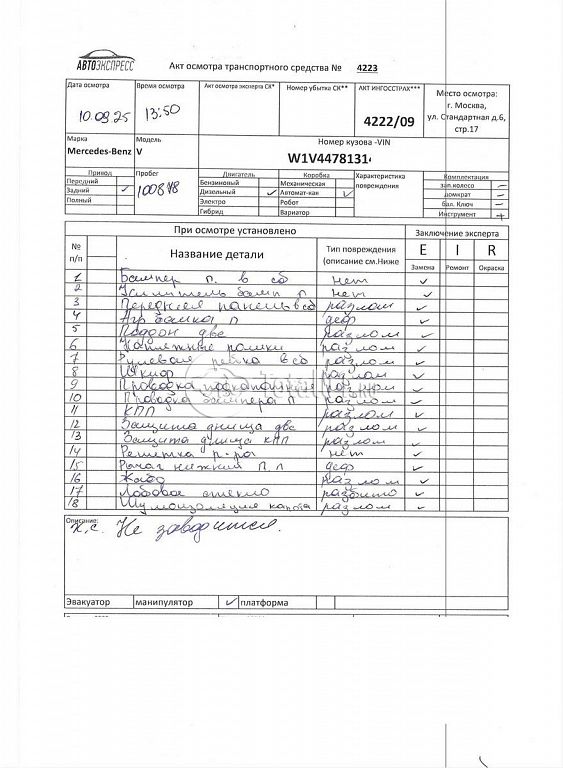 АВТОЭКСПРЕСС
Акт осмотра транспортного средства № 4223
Дата осмотра Время осмотра Акт осмотра эксперта СК* Номер убытка СК** АКТ ИНГОССТРАХ*** Место осмотра:
10.09.25 13:50 4222/09 г. Москва,
ул. Стандартная д.6,
стр.17
Марка Модель Номер кузова -VIN
Mercedes-Benz V W1V4478131
Привод Пробег Двигатель Коробка Характеристика повреждения Комплектация
Передний 100878 Бензиновый Механическая зап.колесо –
Задний ✓ Дизельный ✓ Автомат-кая ✓ домкрат –
Полный Электро Робот бал. Ключ –
Гибрид Вариатор Инструмент +
При осмотре установлено Заключение эксперта
№ п/п Название детали Тип повреждения (описание см.Ниже E I R
Замена Ремонт Окраска
1 Бампер п. в сб нет ✓
2 Усилитель бамп п нет ✓
3 Передняя панель в сб разлом ✓
4 п деф ✓
5 Поддон две разлом ✓
6 Натяжные ролики разлом ✓
7 Рулевая рейка в сб разлом ✓
8 Шкиф разлом ✓
9 Проводка подкапотная разлом ✓
10 Проводка бампера п разлом ✓
11 КПП разлом ✓
12 Защита днища две разлом ✓
13 Защита днища кпп разлом ✓
14 Решетка р-ра нет ✓
15 Рычаг нижний п.л деф ✓
16 разлом ✓
17 Лобовое стекло разбито ✓
18 Шумоизоляция капота разлом ✓
Описание:
х.с. Не заводится.
Эвакуатор манипулятор ✓ платформа